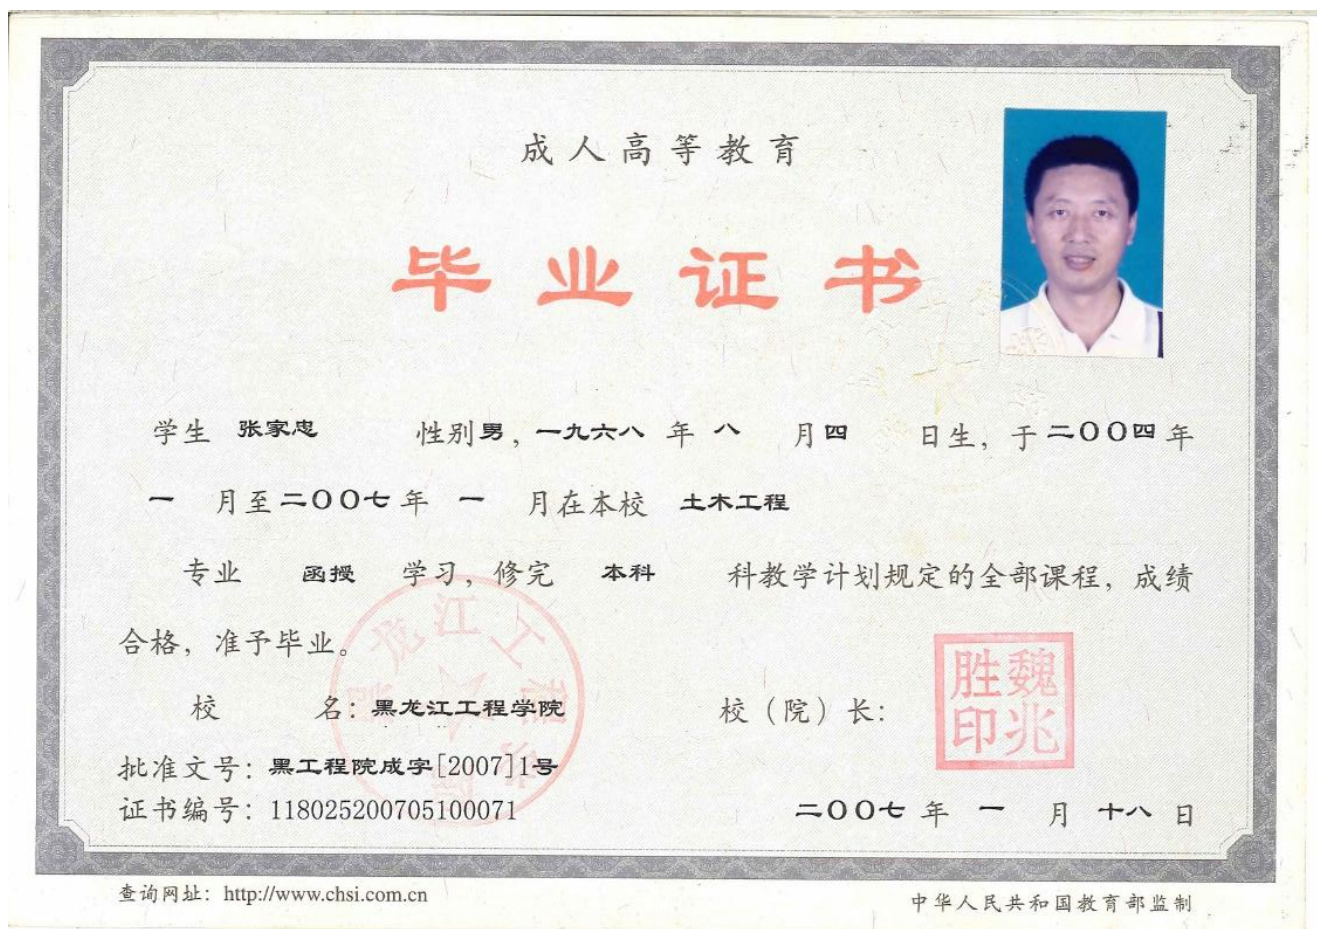 成人高等教育
毕业证书
学生 张家忠 性别男，一九六八 年 八 月四 日生，于二〇〇四年
一 月至二〇〇七年 一 月在本校 土木工程
专业 函授 学习，修完 本科 科教学计划规定的全部课程，成绩
合格，准予毕业。
校 名：黑龙江工程学院 校（院）长：
魏兆胜印
黑龙江工程学院
批准文号：黑工程院成字[2007]1号
证书编号：118025200705100071 二〇〇七 年 一 月 十八 日
查询网址：http://www.chsi.com.cn 中华人民共和国教育部监制